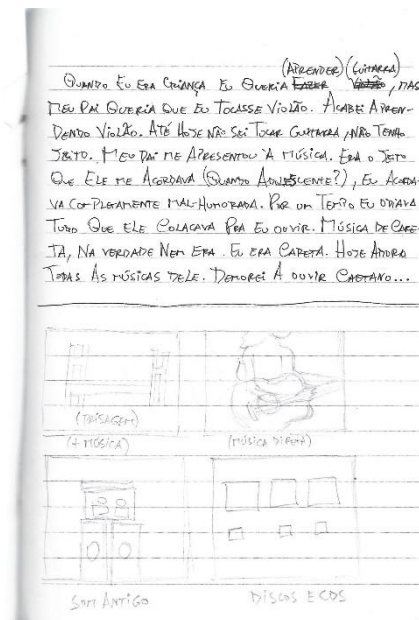 (APRENDER) (GUITARRA)
QUANDO EU ERA CRIANÇA EU QUERIA FAZER VIOLÃO, MAS
MEU PAI QUERIA QUE EU TOCASSE VIOLÃO. ACABEI APREN-
DENDO VIOLÃO. ATÉ HOJE NÃO SEI TOCAR GUITARRA, NÃO TENHO
JEITO. MEU PAI ME APRESENTOU À MÚSICA. ERA O JEITO
QUE ELE ME ACORDAVA (QUANDO ADOLESCENTE?), EU ACORDA-
VA COMPLETAMENTE MAL-HUMORADA. POR UM TEMPO EU ODIAVA
TUDO QUE ELE COLACAVA PRA EU OUVIR. MÚSICA DE CARE-
TA, NA VERDADE NEM ERA. EU ERA CARETA. HOJE ADORO
TODAS AS MÚSICAS DELE. DEMOREI À OUVIR CAETANO...
(PAISAGEM)
(+ MÚSICA)
(MÚSICA DIRETA)
SOM ANTIGO
DISCOS E CDS